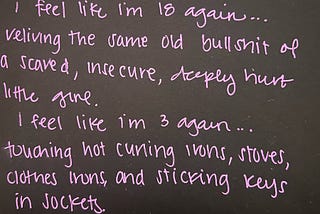 I feel like i'm 18 again...
reliving the same old bullshit of
a scared, insecure, deeply hurt
little girl.
I feel like i'm 3 again...
touching hot curling irons, stoves,
clothes irons, and sticking keys
in sockets.